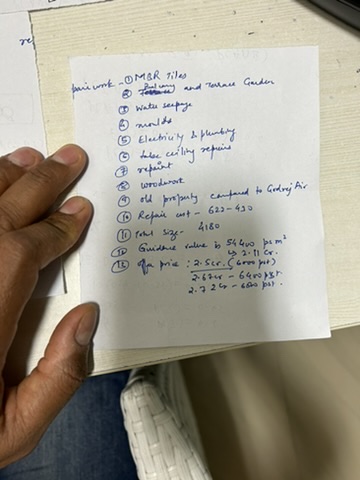 re
pair work - ① MBR Tiles
② Balcony and Terrace Garden
③ Water seepage
④ molds
⑤ Electricity & plumbing
⑥ false ceiling repairs
⑦ repaint
⑧ woodwork
⑨ old property compared to Godrej Air
⑩ Repair cost -
⑪ total size - 4180
⑫ Guidance value is 54400 ps m²
↳ 2.11 Cr.
⑬ price : 2.5 Cr. (6000 psf)
2.67 Cr - 6400 psf.
2.72 Cr - 6500 psf.